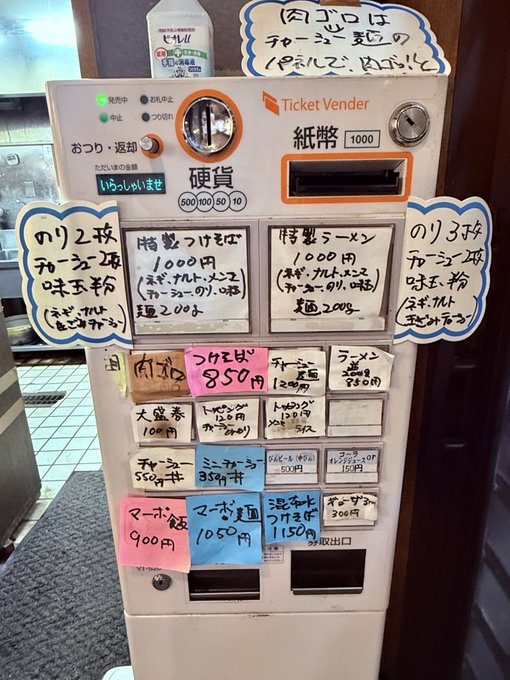 肉ゴロは
チャーシュー麺の
パネルで
ビオレu
Ticket Vender
発売中
お札中止
中止
つり切れ
おつり・返却
ただいまの金額
いらっしゃいませ
硬貨
500 100 50 10
紙幣 1000
のり2枚
チャーシュー2枚
味玉 粉
(ネギ、ナルト
特製つけそば
1000円
(ネギ、ナルト、メンマ)
(チャーシュー、のり、味玉)
麺200g
特製ラーメン
1000円
(ネギ、ナルト、メンマ)
(チャーシュー、のり、味玉)
麺200g
のり3枚
チャーシュー2枚
味玉、粉
(ネギ、ナルト
肉ゴロ
つけそば
850円
チャーシュー麺
1200円
ラーメン
200g
850円
大盛券
100円
トッピング
120円
トッピング
120円
メンマ
ライス
チャーシュー
550円 丼
ミニチャーシュー
350円 丼
びんビール(中びん)
500円
コーラor
オレンジジュース
150円
マーボ飯
900円
マーボ麺
1050円
つけそば
1150円
ギョーザ
300円
券取出口